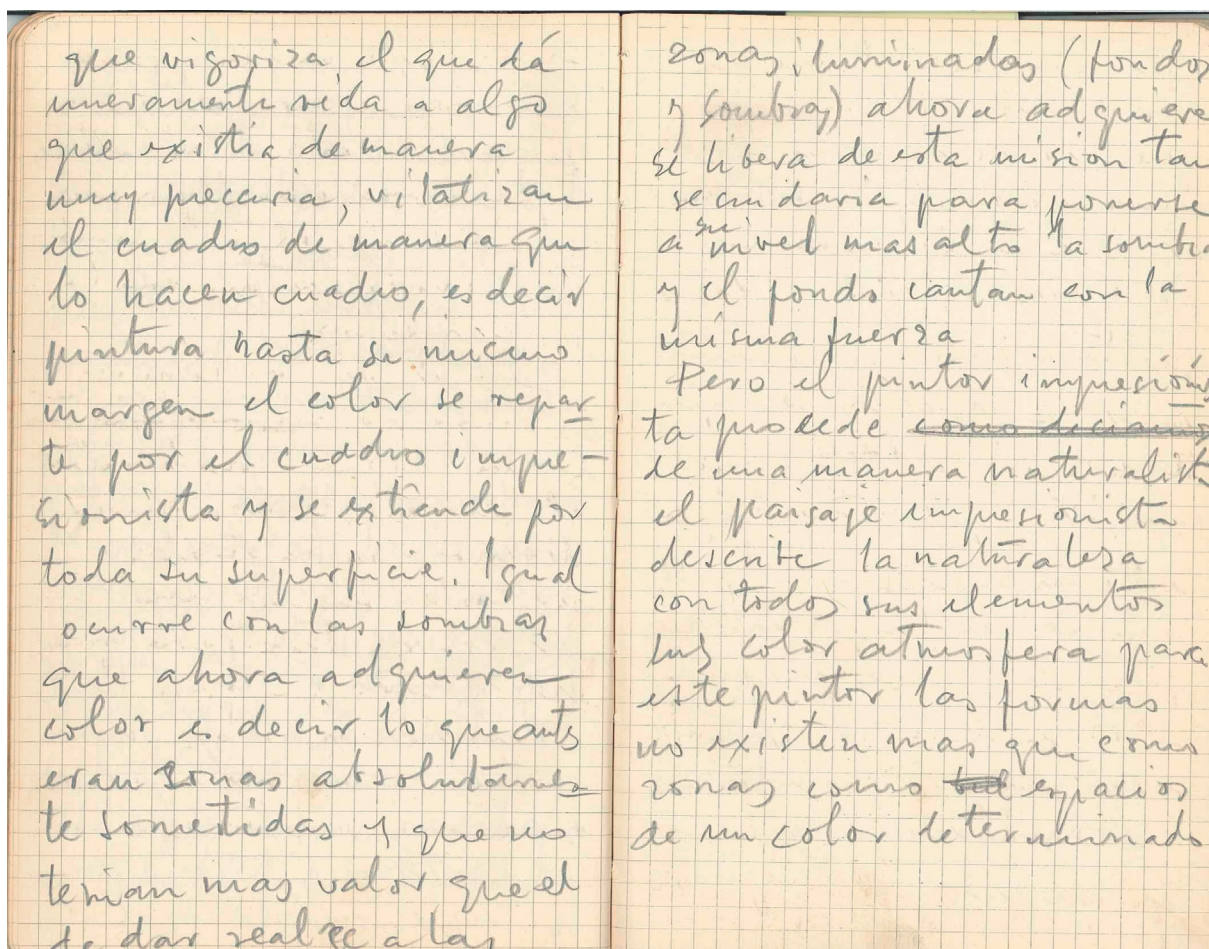 que vigoriza, el que dá
nuevamente vida a algo
que existia de manera
muy precaria, vitalizan
el cuadro de manera que
lo hacen cuadro, es decir
pintura hasta su mismo
margen el color se repar
te por el cuadro impre-
sionista y se extiende por
toda su superficie. Igual
ocurre con las sombras
que ahora adquieren
color es decir lo que antes
eran zonas absolutamen
te sometidas y que no
tenian mas valor que el
de dar realce a las
zonas iluminadas (fondos
y sombras) ahora adquiere
se libera de esta mision tan
secundaria para ponerse
a su nivel mas alto la sombra
y el fondo cantan con la
misma fuerza
Pero el pintor impresionis
ta procede como deciamos
de una manera naturalista
el paisaje impresionista
describe la naturaleza
con todos sus elementos
sus color atmosfera para
este pintor las formas
no existen mas que como
zonas como espacios
de un color determinado